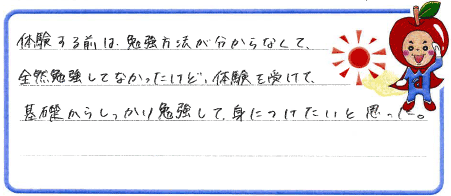 体験する前は、勉強方法が分からなくて、
全然勉強してなかったけど、体験を受けて、
基礎からしっかり勉強して、身につけたいと思った。